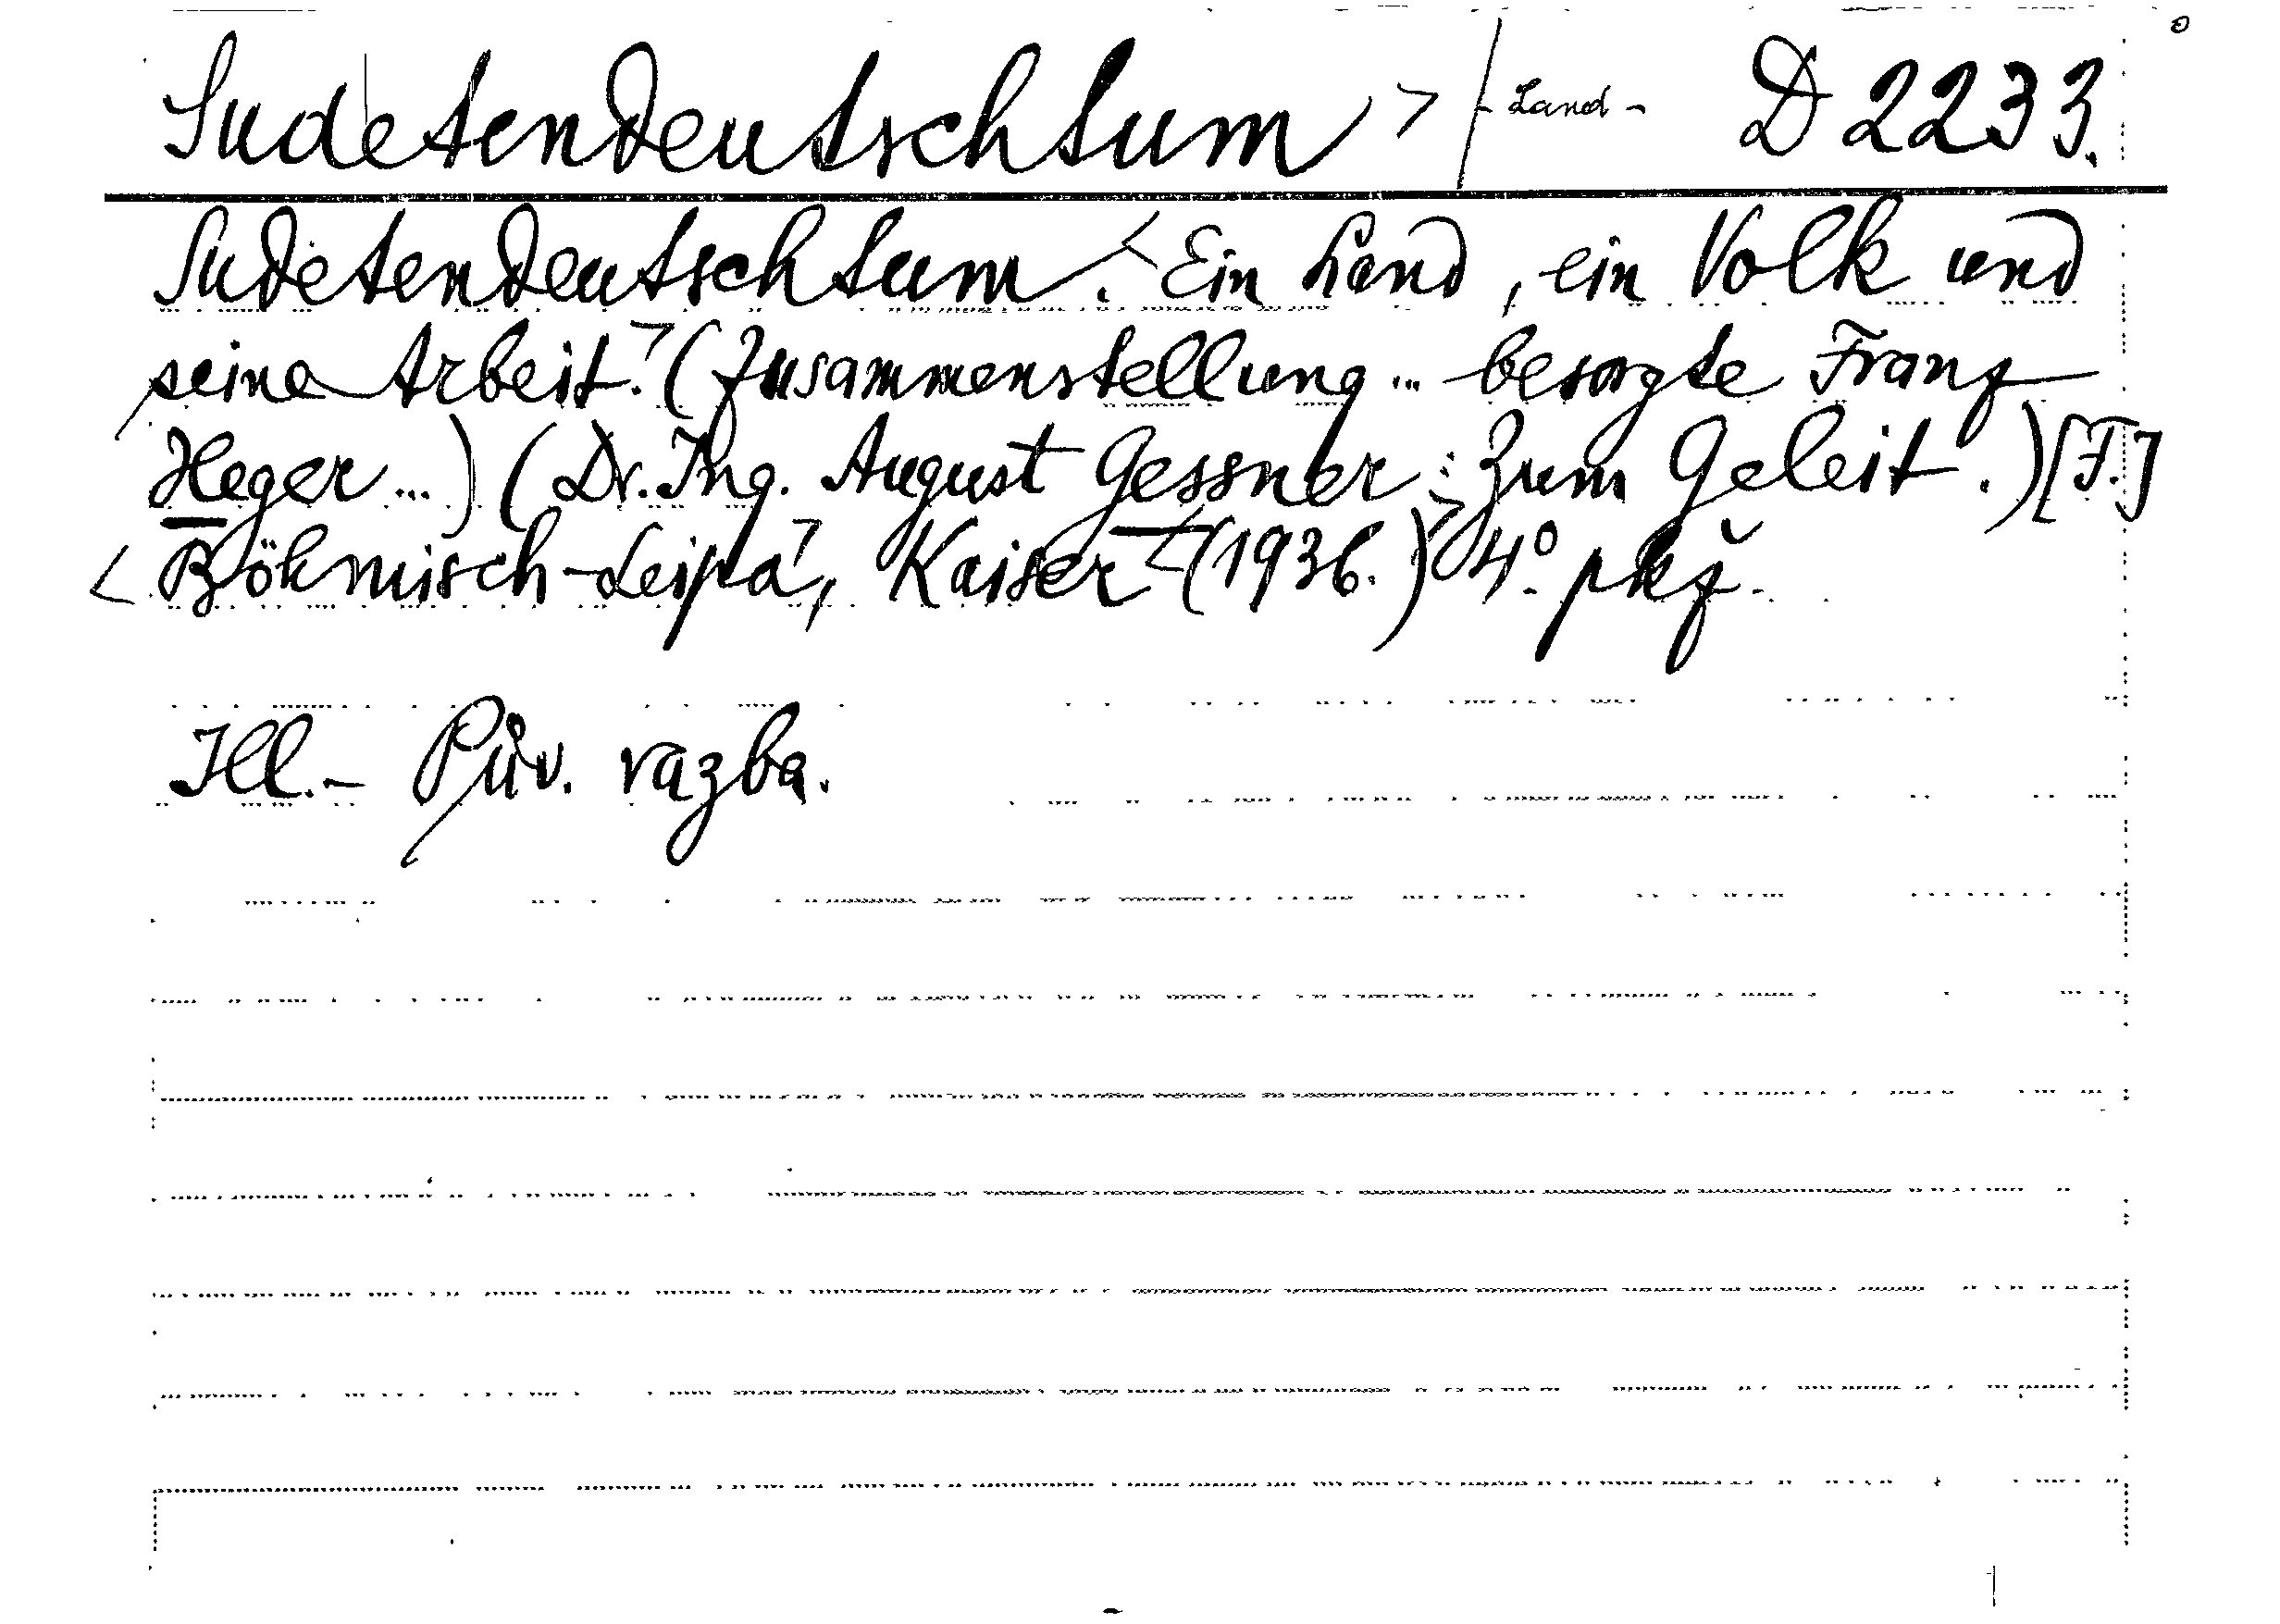 Sudetendeutschtum > / - Land - D 2233.
Sudetendeutschtum. < Ein Land, ein Volk und
seine Arbeit. > (Zusammenstellung ... besorgte Franz
Heger ...) (Dr. Ing. August Gessner: Zum Geleit.) [F.]
< Böhmisch-Leipa >, Kaiser < (1936.) > 4°. 
Ill. - Pův. vazba.